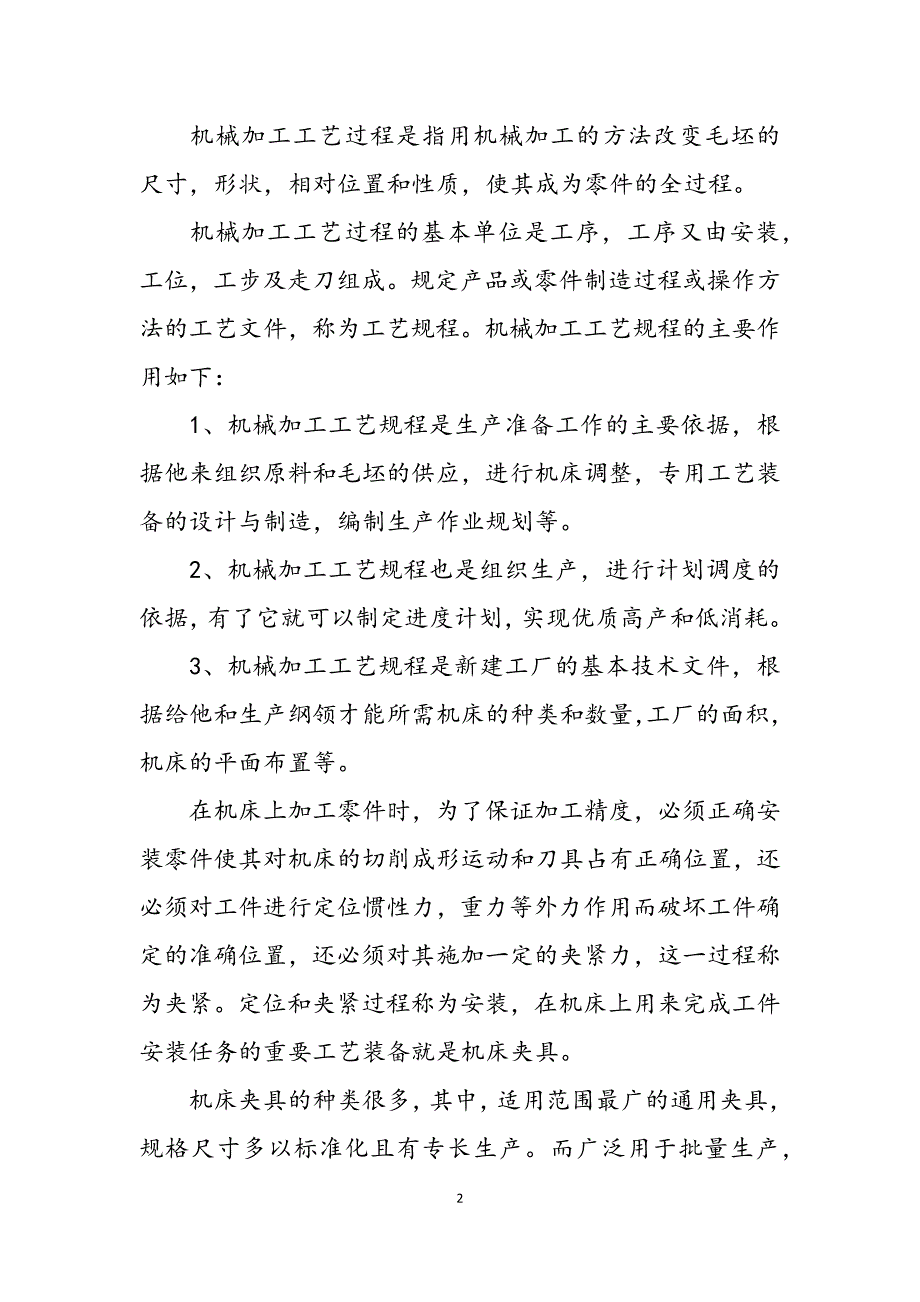 机械加工工艺过程是指用机械加工的方法改变毛坯的
尺寸，形状，相对位置和性质，使其成为零件的全过程。
机械加工工艺过程的基本单位是工序，工序又由安装，
工位，工步及走刀组成。规定产品或零件制造过程或操作方
法的工艺文件，称为工艺规程。机械加工工艺规程的主要作
用如下：
1、机械加工工艺规程是生产准备工作的主要依据，根
据他来组织原料和毛坯的供应，进行机床调整，专用工艺装
备的设计与制造，编制生产作业规划等。
2、机械加工工艺规程也是组织生产，进行计划调度的
依据，有了它就可以制定进度计划，实现优质高产和低消耗。
3、机械加工工艺规程是新建工厂的基本技术文件，根
据给他和生产纲领才能所需机床的种类和数量，工厂的面积，
机床的平面布置等。
在机床上加工零件时，为了保证加工精度，必须正确安
装零件使其对机床的切削成形运动和刀具占有正确位置，还
必须对工件进行定位惯性力，重力等外力作用而破坏工件确
定的准确位置，还必须对其施加一定的夹紧力，这一过程称
为夹紧。定位和夹紧过程称为安装，在机床上用来完成工件
安装任务的重要工艺装备就是机床夹具。
机床夹具的种类很多，其中，适用范围最广的通用夹具，
规格尺寸多以标准化且有专长生产。而广泛用于批量生产，
2